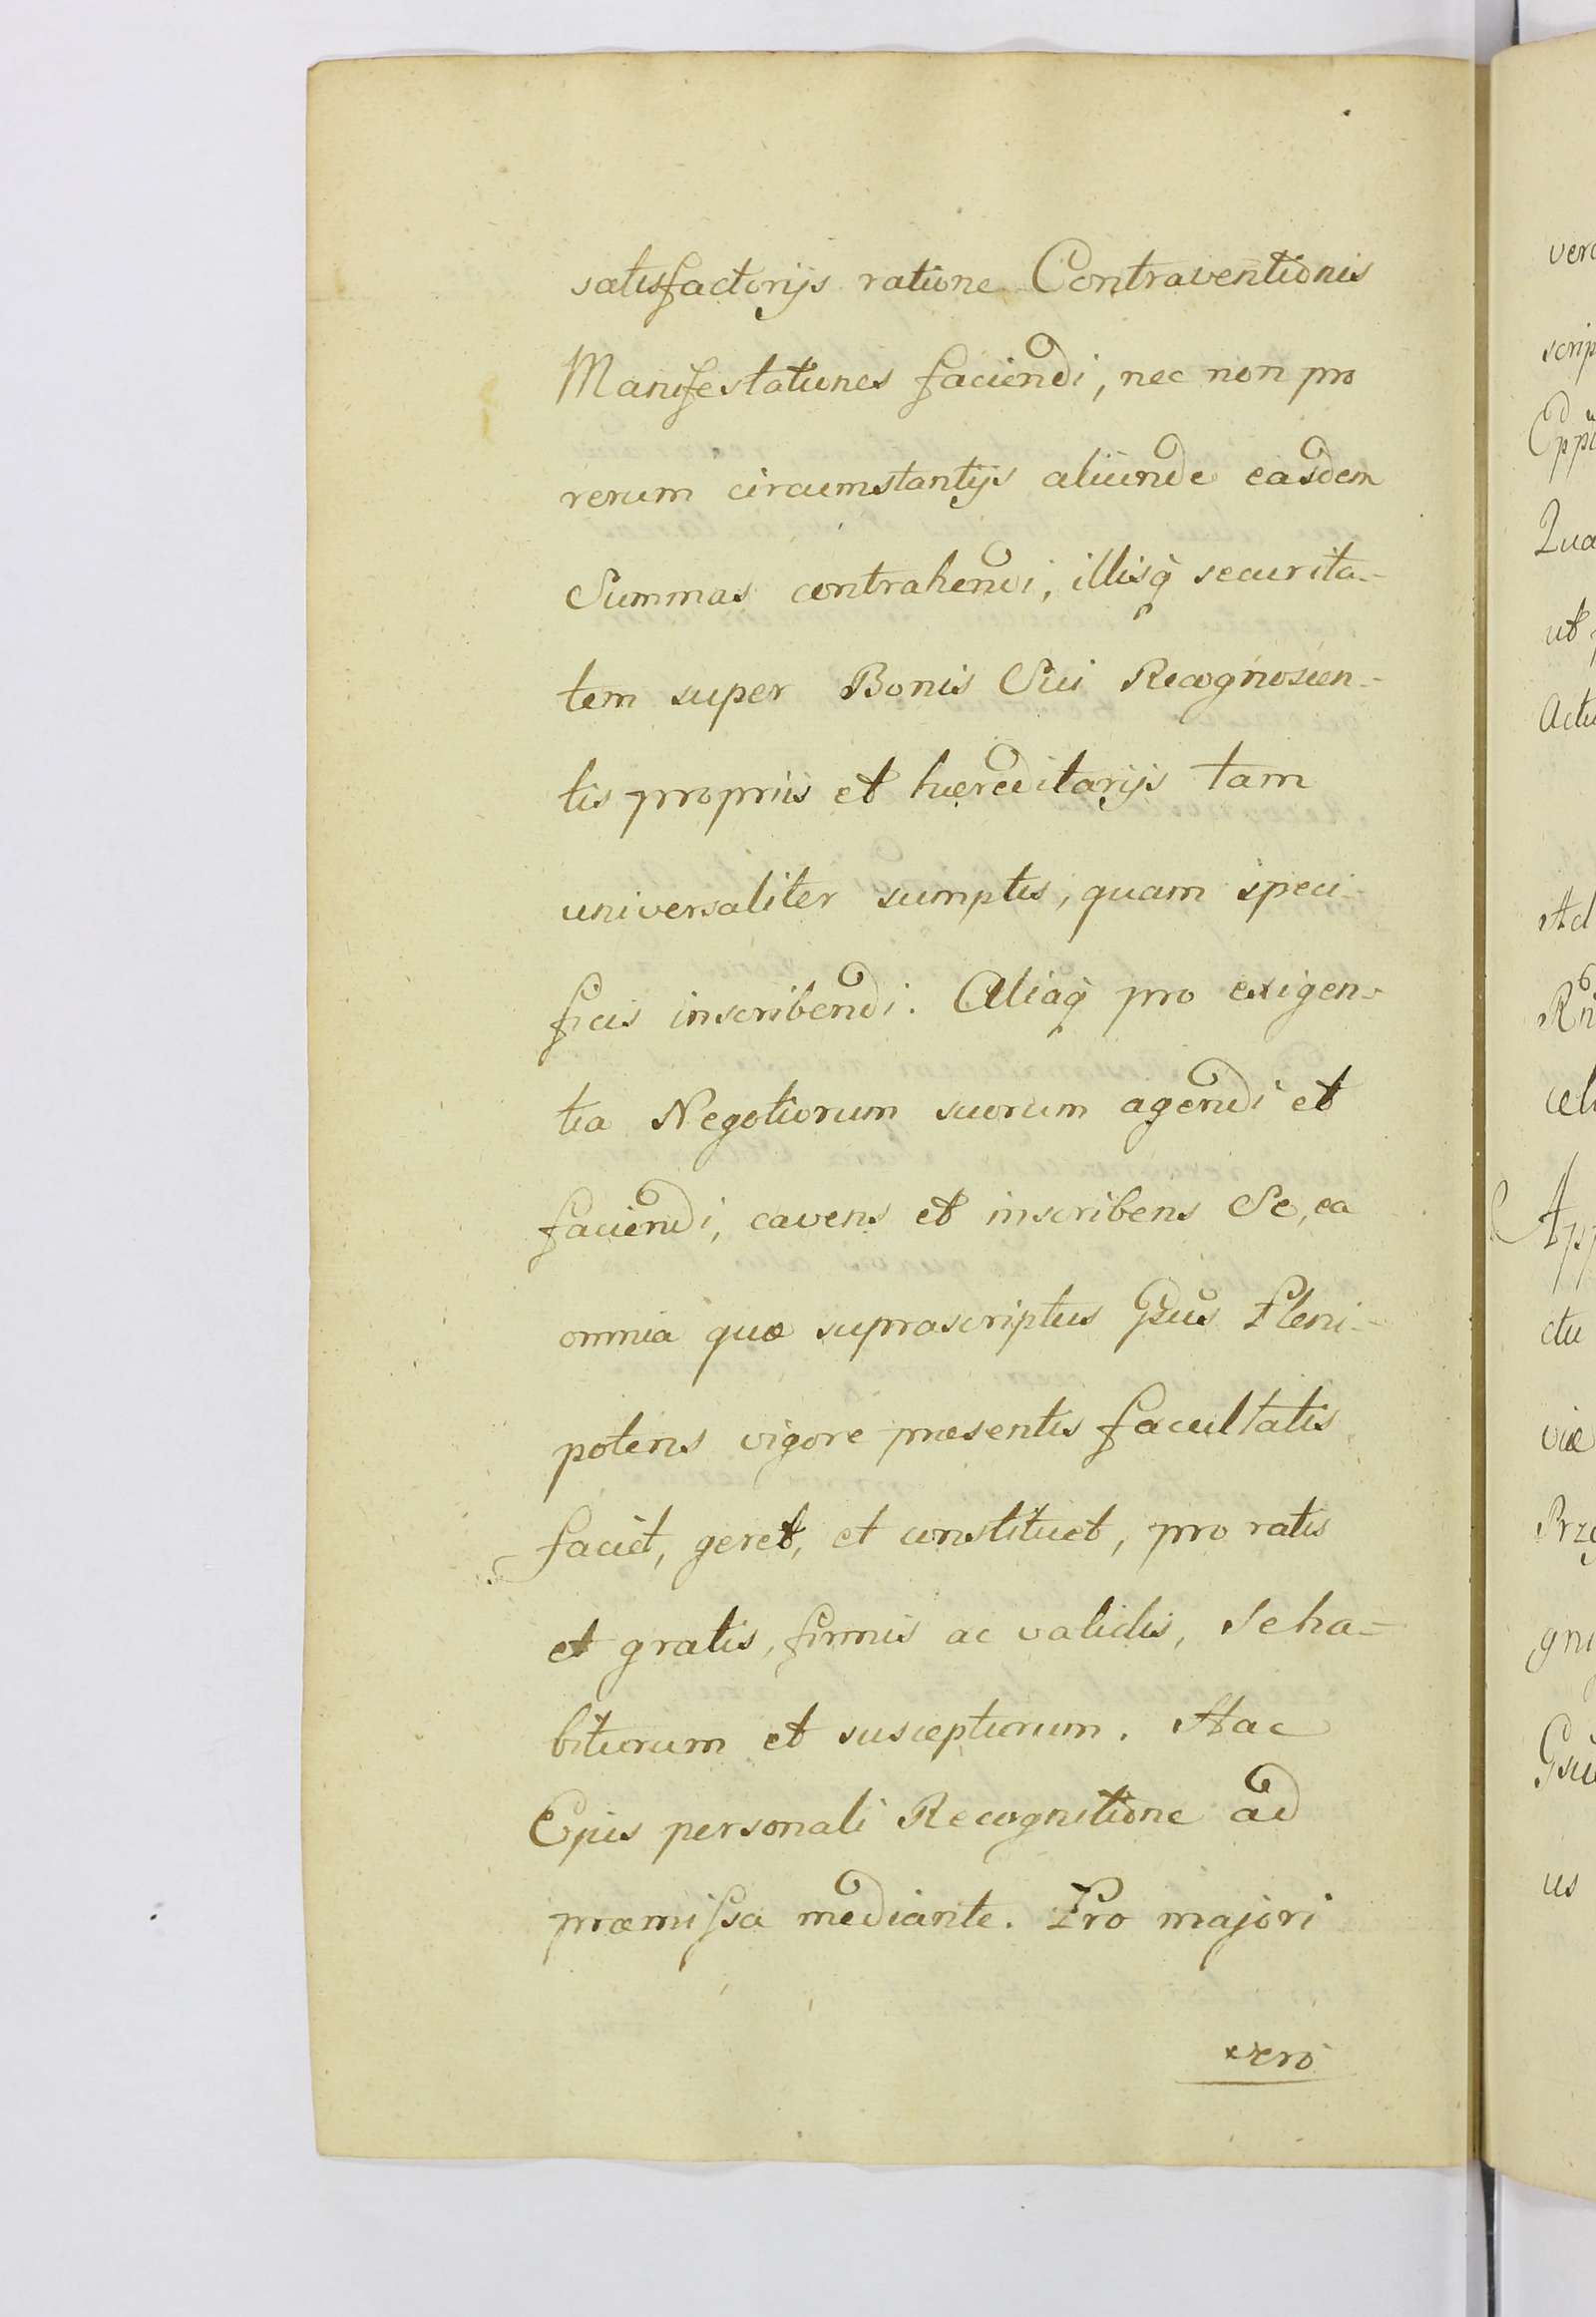 satisfactorijs ratione Contraventionis
Manifestationes faciendi, nec non pro
rerum circumstantijs aliunde easdem
Summas contrahendi, illisq̃ securita-
tem super Bonis Sui Recognoscen-
tis proprijs et hæreditarijs tam
universaliter sumptis, quam speci-
ficis inscribendi. Aliaq̃ pro exigen-
tia Negotiorum suorum agendi et
faciendi, cavens et inscribens Se, ea
omnia quæ suprascriptus Gsus Pleni-
potens vigore præsentis facultatis
faciet, geret, et constituet, pro ratis
et gratis, firmis ac validis, Se ha-
biturum et suscepturum. Hac
Ejus personali Recognitione ad
præmissa mediante. Pro majori
vero